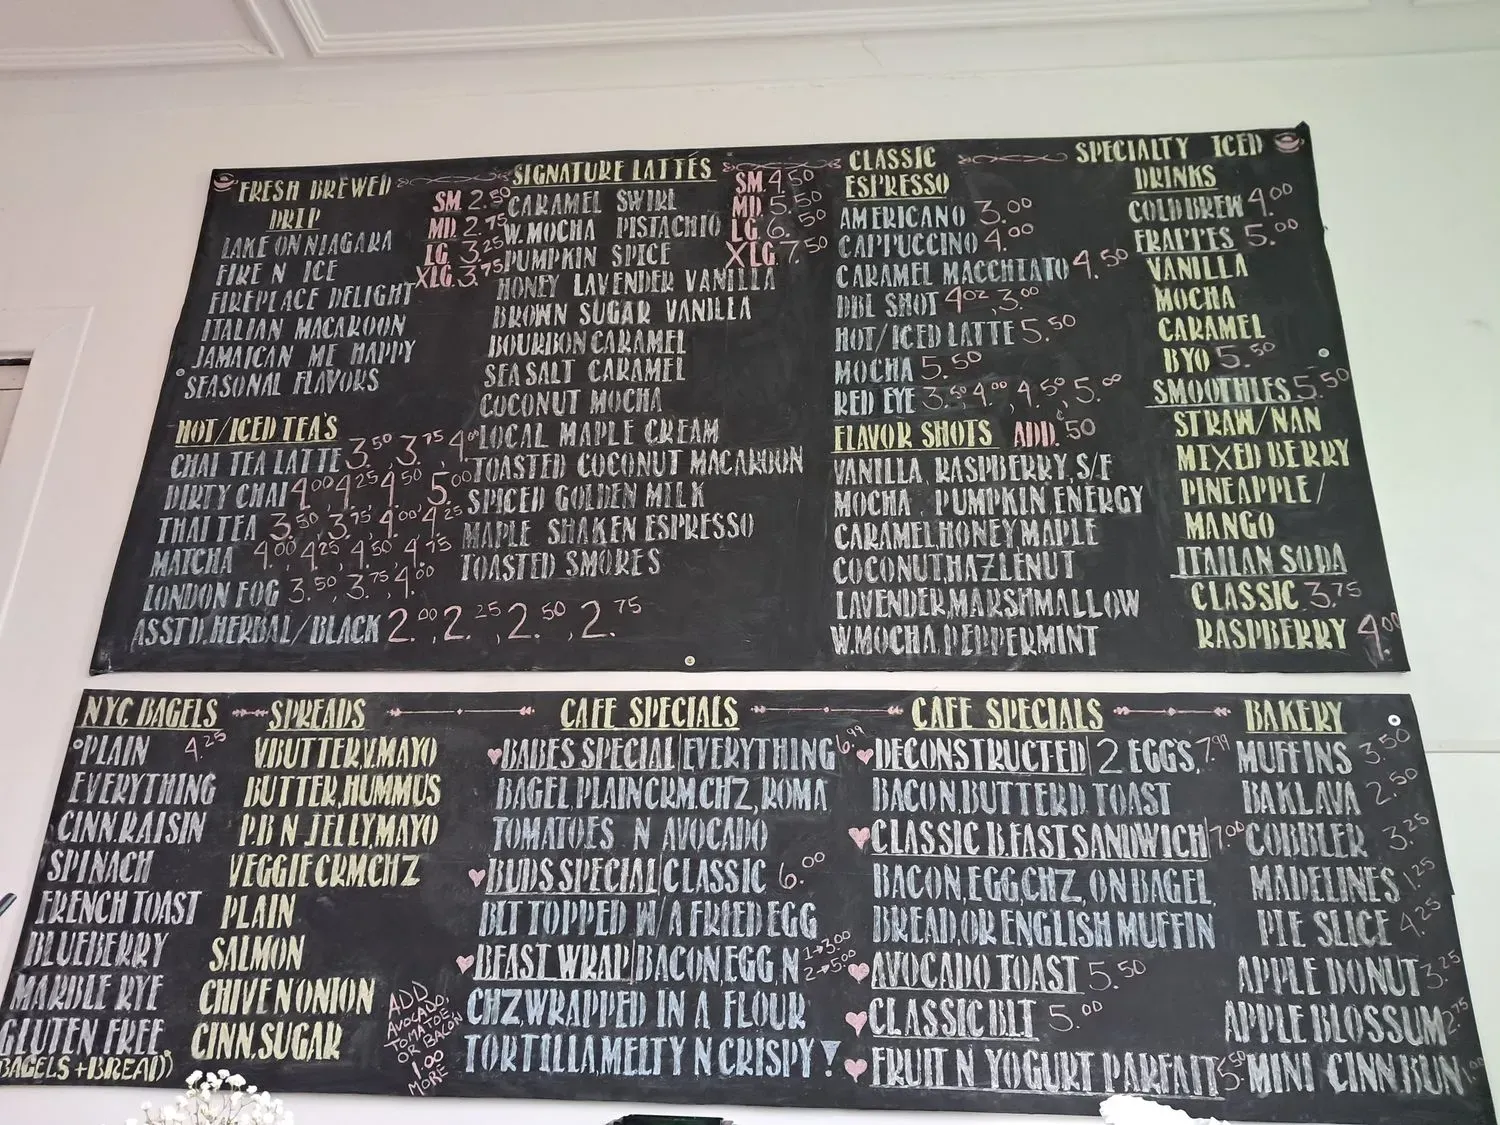 FRESH BREWED
DRIP
SM. 2.50
MD. 2.75
LG. 3.25
XLG. 3.75
LAKE ON NIAGARA
FIRE N ICE
FIREPLACE DELIGHT
ITALIAN MACAROON
JAMAICAN ME HAPPY
SEASONAL FLAVORS
HOT/ICED TEA'S
CHAI TEA LATTE 3.50, 3.75, 4.00
DIRTY CHAI 4.00, 4.25, 4.50, 5.00
THAI TEA 3.50, 3.75, 4.00, 4.25
MATCHA 4.00, 4.25, 4.50, 4.75
LONDON FOG 3.50, 3.75, 4.00
ASSTD. HERBAL/BLACK 2.00, 2.25, 2.50, 2.75
SIGNATURE LATTÉS
SM. 4.50
MD. 5.50
LG. 6.50
XLG. 7.50
CARAMEL SWIRL
W. MOCHA PISTACHIO
PUMPKIN SPICE
HONEY LAVENDER VANILLA
BROWN SUGAR VANILLA
BOURBON CARAMEL
SEA SALT CARAMEL
COCONUT MOCHA
LOCAL MAPLE CREAM
TOASTED COCONUT MACAROON
SPICED GOLDEN MILK
MAPLE SHAKEN ESPRESSO
TOASTED SMORES
CLASSIC
ESPRESSO
AMERICANO 3.00
CAPPUCCINO 4.00
CARAMEL MACCHIATO 4.50
DBL SHOT 4oz, 3.00
HOT/ICED LATTE 5.50
MOCHA 5.50
RED EYE 3.50, 4.00, 4.50, 5.00
FLAVOR SHOTS ADD. ¢50
VANILLA, RASPBERRY, S/F
MOCHA, PUMPKIN, ENERGY
CARAMEL, HONEY, MAPLE
COCONUT, HAZLENUT
LAVENDER, MARSHMALLOW
W. MOCHA, PEPPERMINT
SPECIALTY ICED
DRINKS
COLD BREW 4.00
FRAPPES 5.00
VANILLA
MOCHA
CARAMEL
BYO 5.50
SMOOTHIES 5.50
STRAW/NAN
MIXED BERRY
PINEAPPLE/
MANGO
ITAILAN SODA
CLASSIC 3.75
RASPBERRY 4.00
NYC BAGELS
PLAIN 4.25
EVERYTHING
CINN. RAISIN
SPINACH
FRENCH TOAST
BLUEBERRY
MARBLE RYE
GLUTEN FREE
BAGELS + BREAD
SPREADS
V. BUTTER, V. MAYO
BUTTER, HUMMUS
P.B N JELLY, MAYO
VEGGIE CRM. CHZ
PLAIN
SALMON
CHIVE N ONION
CINN. SUGAR
ADD
AVOCADO,
TOMATOE,
OR BACON
1.00
MORE
CAFE SPECIALS
BABES SPECIAL | EVERYTHING 6.99
BAGEL, PLAIN CRM. CHZ, ROMA
TOMATOES N AVOCADO
BUDS SPECIAL | CLASSIC 6.00
BLT TOPPED W/A FRIED EGG
BFAST WRAP | BACON, EGG N 1→3.00
2→5.00
CHZ, WRAPPED IN A FLOUR
TORTILLA, MELTY N CRISPY!
CAFE SPECIALS
DECONSTRUCTED | 2 EGG'S, 7.99
BACON, BUTTERD TOAST
CLASSIC B.FAST SANDWICH 7.00
BACON, EGG, CHZ, ON BAGEL,
BREAD, OR ENGLISH MUFFIN
AVOCADO TOAST 5.50
CLASSIC BLT 5.00
FRUIT N YOGURT PARFAIT 5.50
BAKERY
MUFFINS 3.50
BAKLAVA 2.50
COBBLER 3.25
MADELINES 1.25
PIE SLICE 4.25
APPLE DONUT 3.25
APPLE BLOSSUM 2.75
MINI CINN BUN 1.00